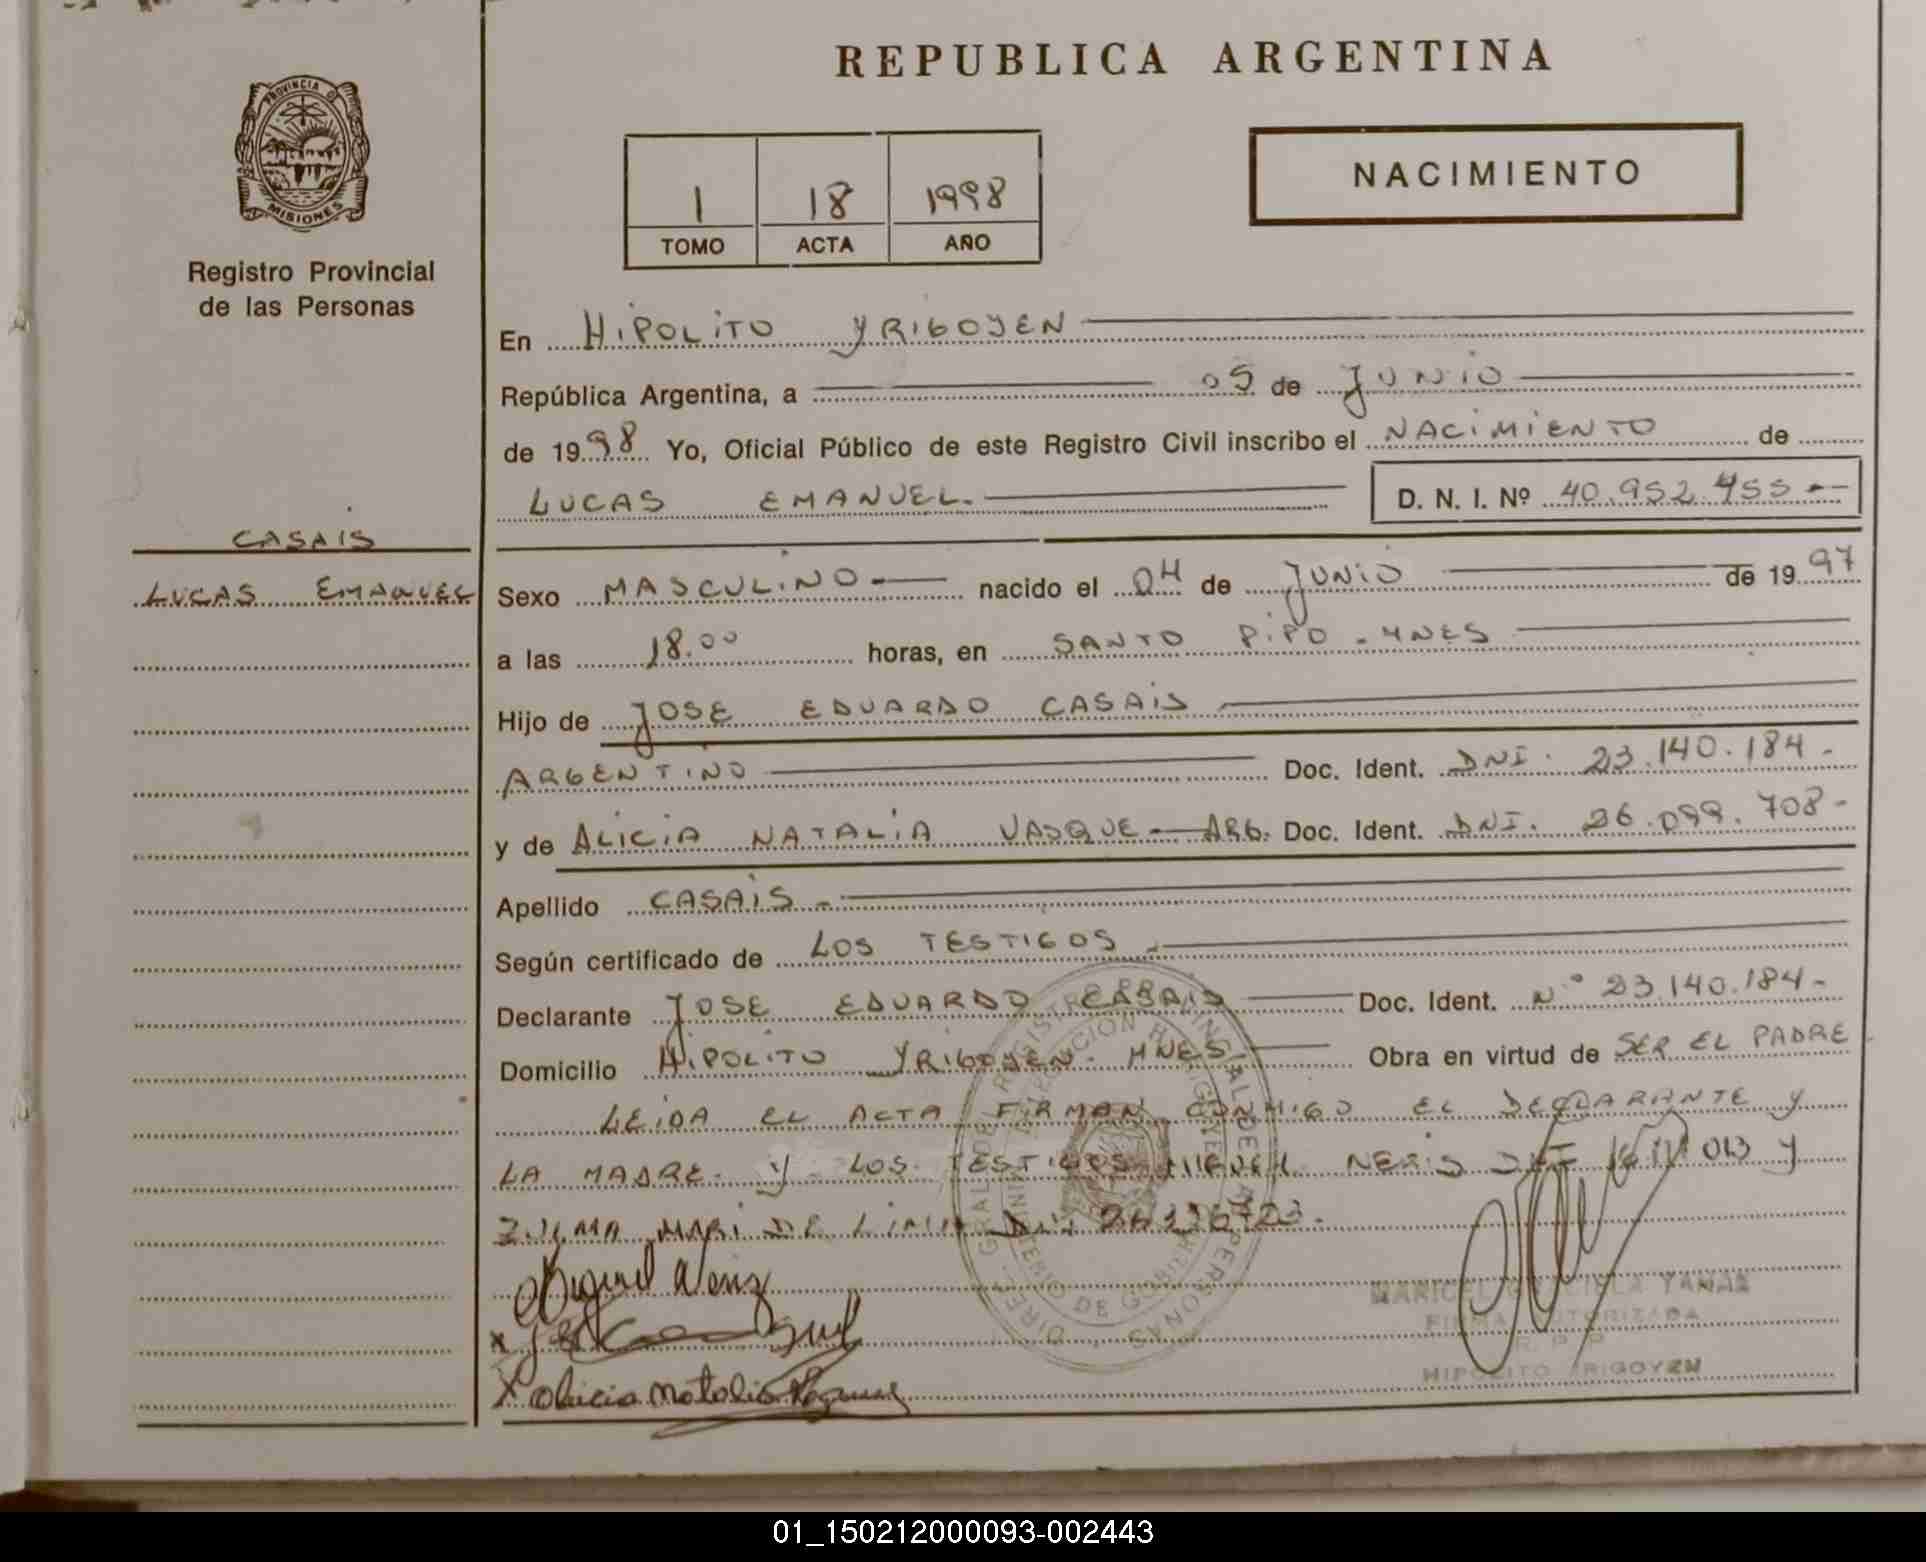 REPUBLICA ARGENTINA
PROVINCIA DE
MISIONES
Registro Provincial
de las Personas
1 18 1998
TOMO ACTA AÑO
NACIMIENTO
En HIPOLITO YRIGOYEN
República Argentina, a 05 de JUNIO
de 1998 Yo, Oficial Público de este Registro Civil inscribo el NACIMIENTO de
LUCAS EMANUEL. D. N. I. Nº 40.952.455
CASAIS
LUCAS EMANUEL
Sexo MASCULINO nacido el 04 de JUNIO de 1997
a las 18.00 horas, en SANTO PIPO - MNES
Hijo de JOSE EDUARDO CASAIS
ARGENTINO Doc. Ident. DNI. 23.140.184.-
y de ALICIA NATALIA VASQUE - ARG. Doc. Ident. DNI. 26.099.708-
Apellido CASAIS.-
Según certificado de LOS TESTIGOS
Declarante JOSE EDUARDO CASAIS Doc. Ident. N° 23.140.184-
Domicilio HIPOLITO YRIGOYEN. MNES Obra en virtud de SER EL PADRE
LEIDA EL ACTA FIRMAN CONMIGO EL DECLARANTE Y
LA MADRE. Y LOS TESTIGOS MIGUEL NERIS DNI Y
ZULMA MARI DE LIMA DNI
Miguel Neris
Alicia Natalia
FIRMA AUTORIZADA
R. P. P.
HIPOLITO YRIGOYEN
01_150212000093-002443